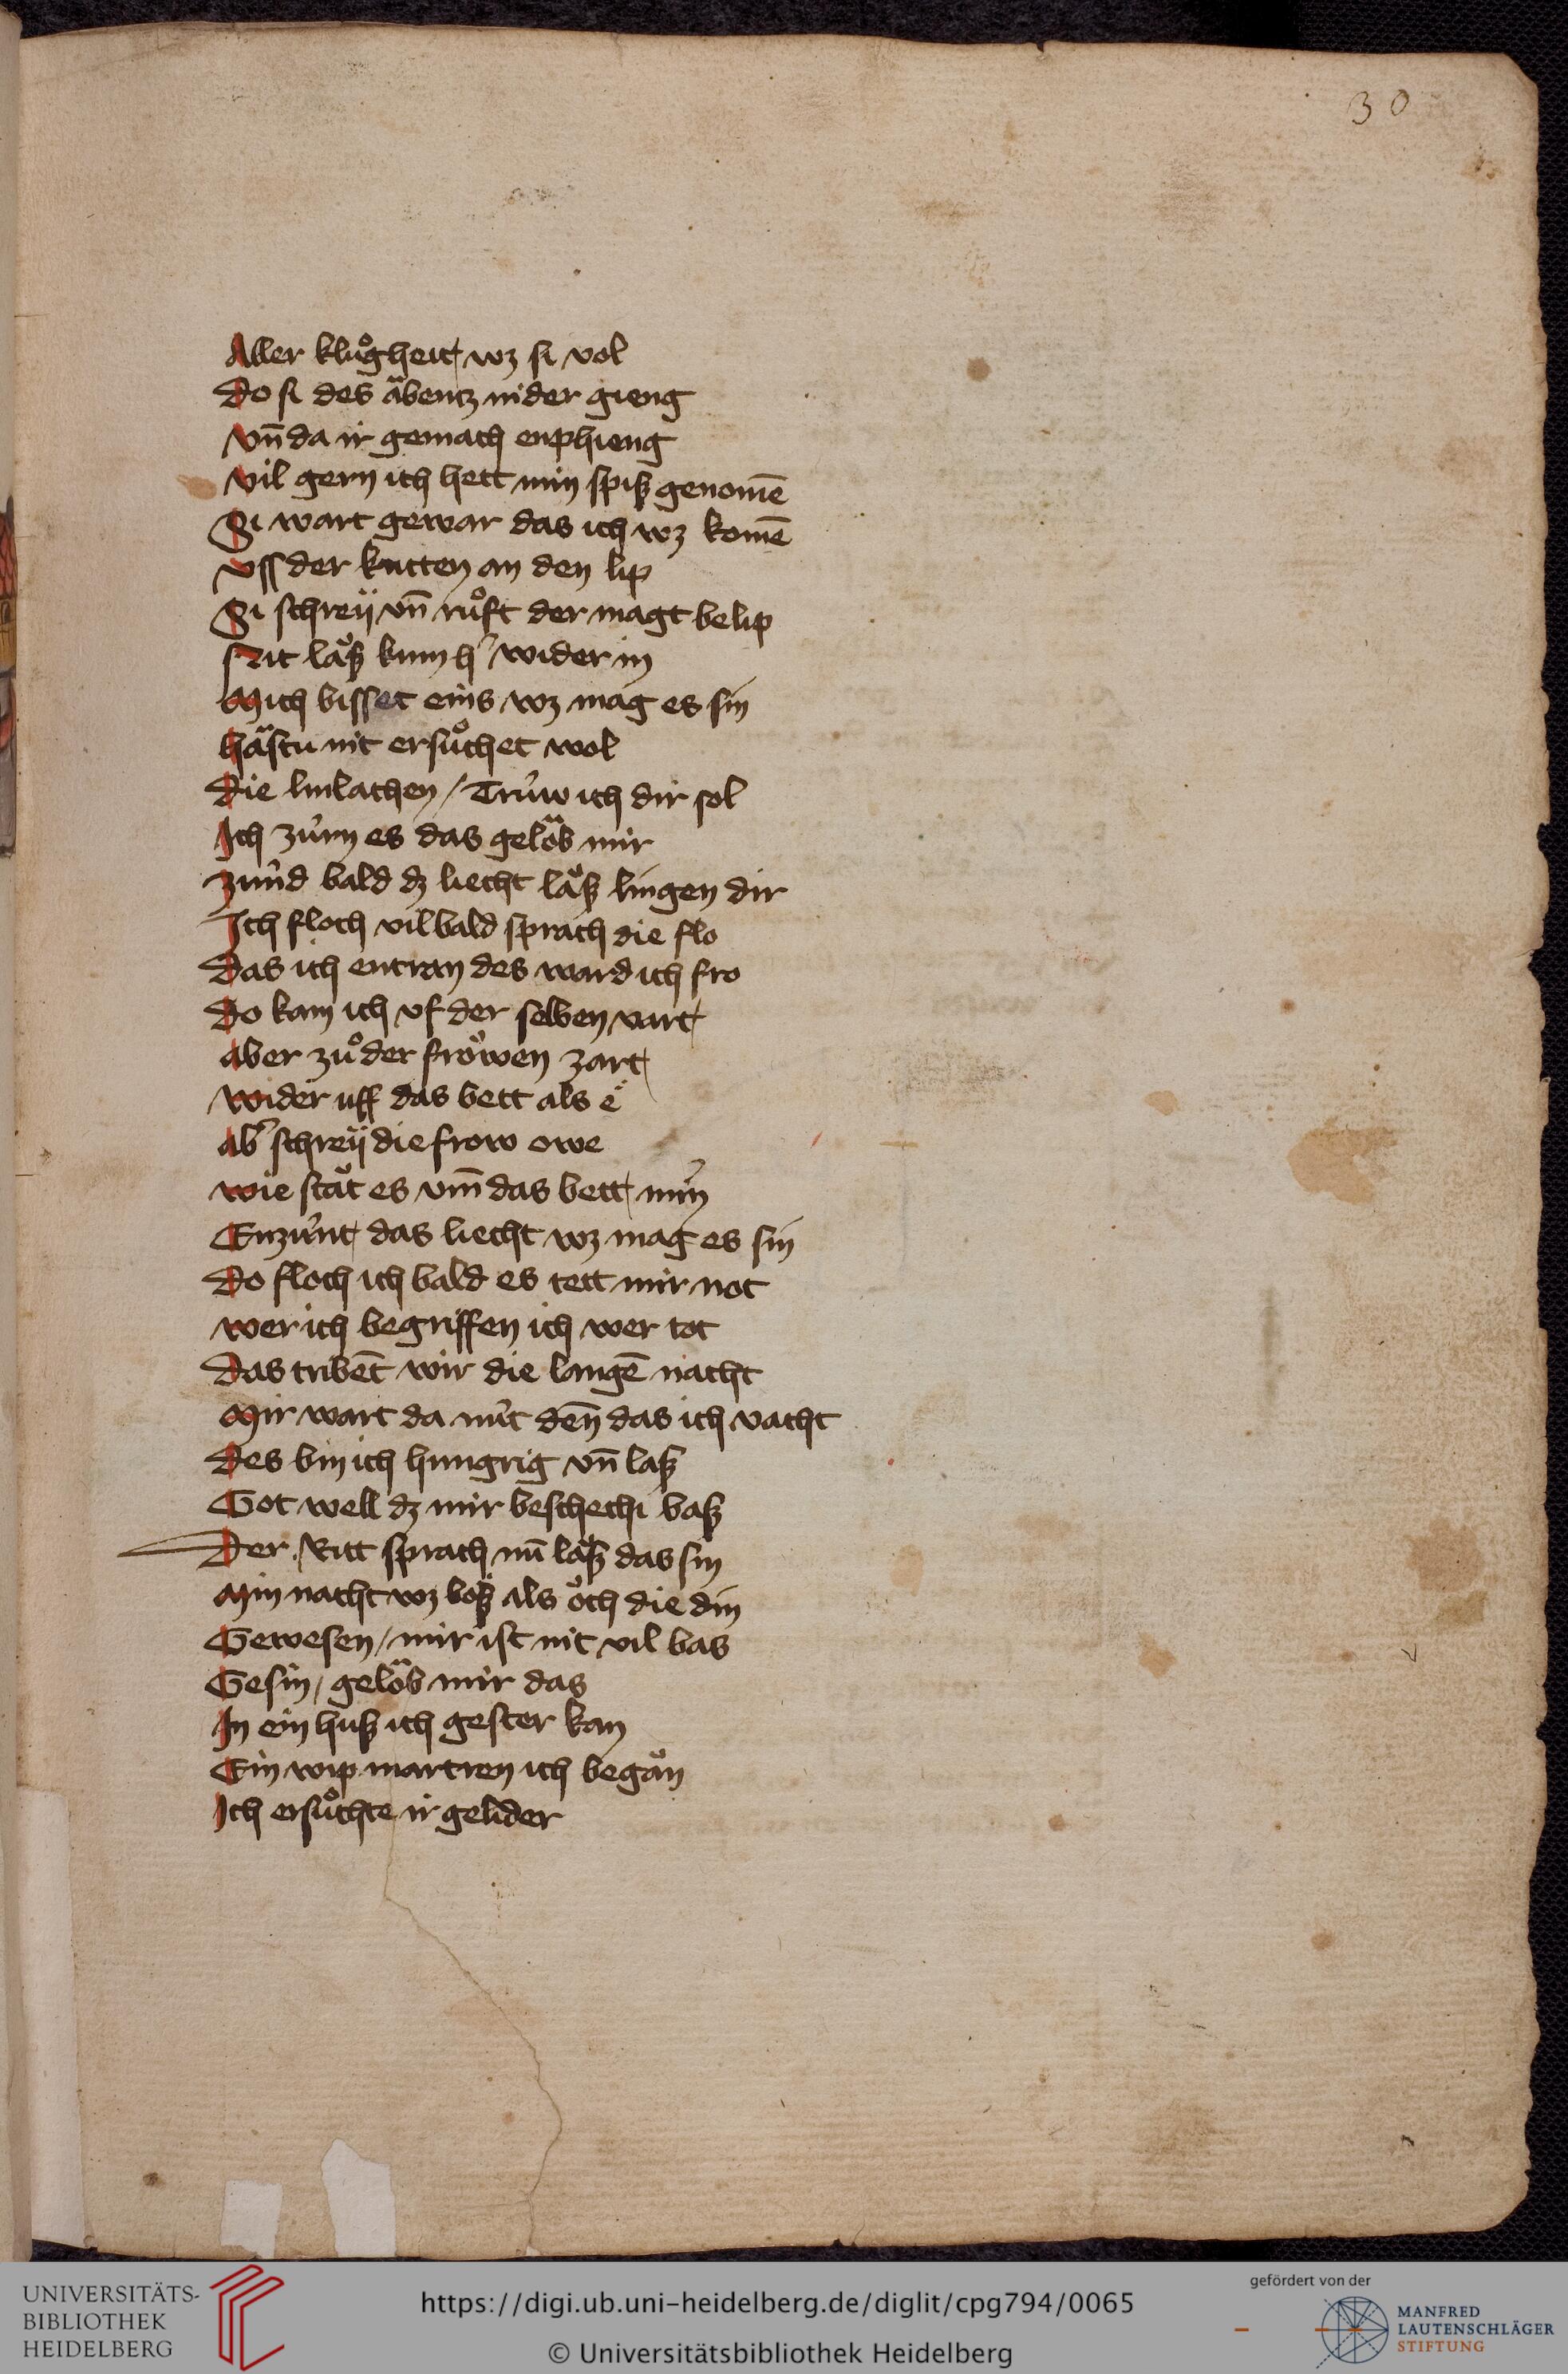 30
Aller klůgheit wz si vol
Do si des äbentz nider gieng
Vn̄ da ir gemach enphieng
Vil gern ich hett min spiß genomē
Si wart gewar das ich wz komē
Vss der kutten an den lip
Si schreÿ vn̄ růft der magt belip
Nit lǎß kum h' wider in
Mich bisset eins wz mag es sin
Hästu nit ersůchet wol
Die linlachen / Trůw ich dir sol
Ich zürn es das gelöb mir
Zünd bald dz liecht lǎß lingen dir
Ich floch vil bald sprach die flo
Das ich entran des ward ich fro
Do kam ich vf der selben vart
Aber zů der fröwen zart
Wider uff das bett als ë
Ab' schreÿ die frow owe
Wie stǎt es vm̄ das bett min
Enzünt das liecht wz mag es sin
Do floch ich bald es tett mir not
Wer ich begriffen ich wer tot
Das tribēt wir die langē nacht
Mir wart da nüt den̄ das ich vacht
Des bin ich hungrig vn̄ laß
Got well dz mir beschechi baß
Der Ritt sprach nū lǎß das sin
Min nacht wz böß als öch die din
Gewesen / mir ist nit vil bas
Gesin / gelöb mir das
In ein huß ich gester kan
Ein wip martren ich begǎn
Ich ersůchte ir gelider
UNIVERSITÄTS-
BIBLIOTHEK
HEIDELBERG
https://digi.ub.uni-heidelberg.de/diglit/cpg794/0065
© Universitätsbibliothek Heidelberg
gefördert von der
MANFRED
LAUTENSCHLÄGER
STIFTUNG